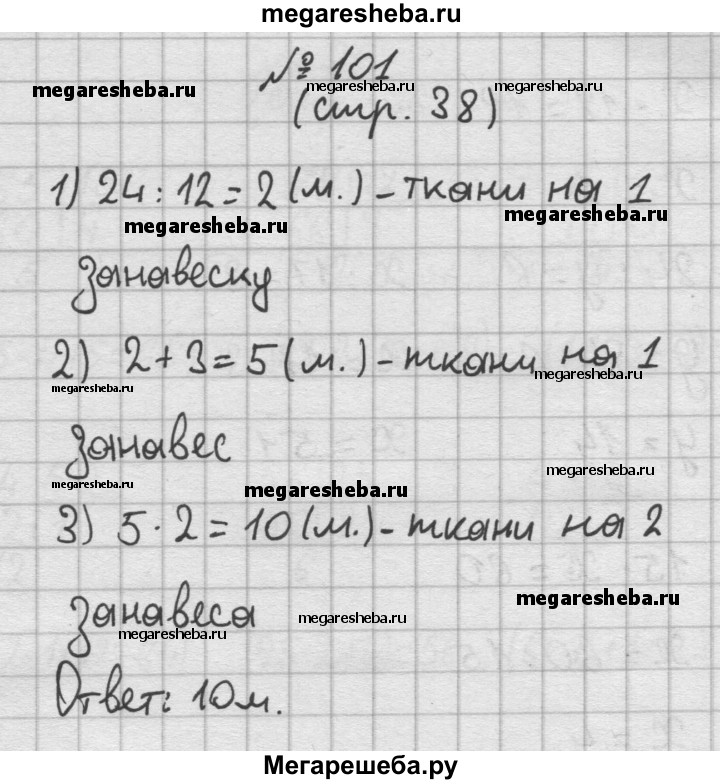 megaresheba.ru
№ 101
megaresheba.ru megaresheba.ru megaresheba.ru
(стр. 38)
1) 24 : 12 = 2 (м.) - ткани на 1
megaresheba.ru megaresheba.ru
занавеску
2) 2 + 3 = 5 (м.) - ткани на 1
megaresheba.ru megaresheba.ru
занавес
megaresheba.ru megaresheba.ru megaresheba.ru
3) 5 · 2 = 10 (м.) - ткани на 2
megaresheba.ru
занавеса
megaresheba.ru megaresheba.ru
Ответ: 10 м.
Мегарешеба.ру